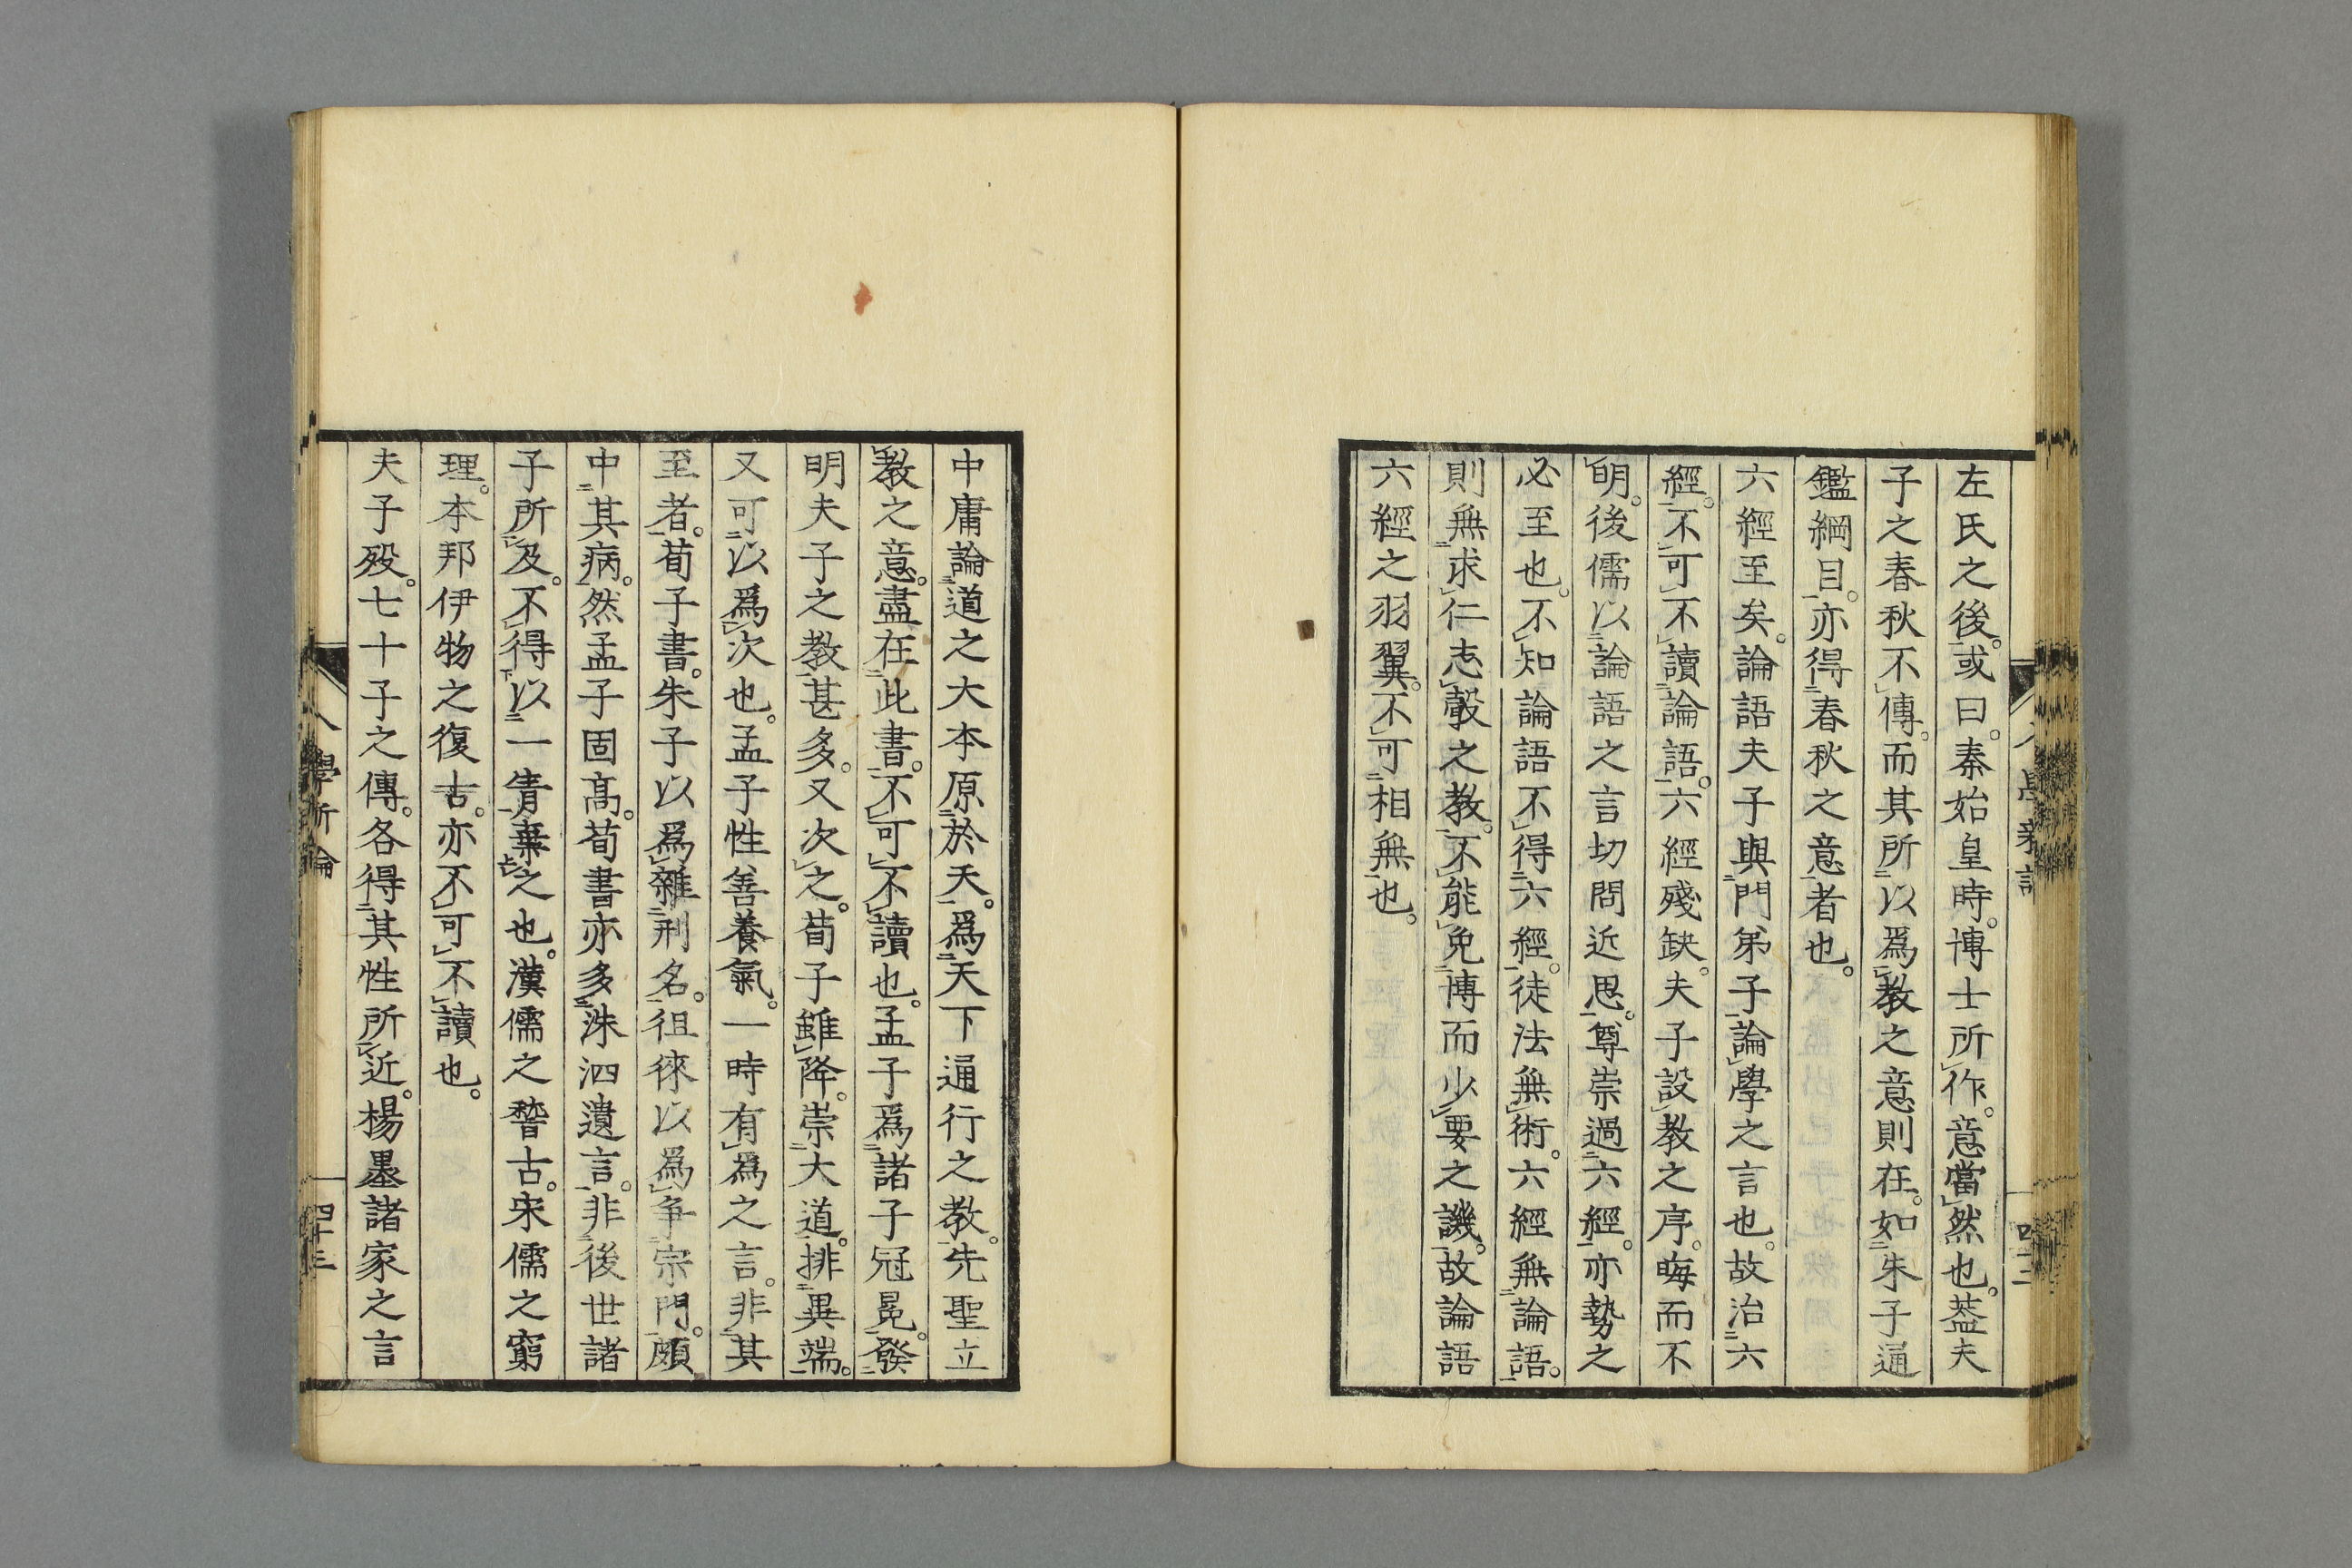 左氏之後。或曰。秦始皇時。博士所作。意當然也。葢夫
子之春秋不傳。而其所以爲教之意則在。如朱子通
鑑綱目。亦得春秋之意者也。
六經至矣。論語夫子與門弟子論學之言也。故治六
經。不可不讀論語。六經殘缺。夫子設教之序。晦而不
明。後儒以論語之言切問近思。尊崇過六經。亦勢之
必至也。不知論語不得六經。徒法無術。六經無論語。
則無求仁志彀之教。不能免博而少要之譏。故論語
六經之羽翼。不可相無也。
中庸論道之大本原於天。爲天下通行之教。先聖立
教之意。盡在此書。不可不讀也。孟子爲諸子冠冕。發
明夫子之教甚多。又次之。荀子雖降。崇大道。排異端。
又可以爲次也。孟子性善養氣。一時有爲之言。非其
至者。荀子書。朱子以爲雜刑名。徂徠以爲爭宗門。頗
中其病。然孟子固高。荀書亦多洙泗遺言。非後世諸
子所及。不得以一眚棄之也。漢儒之稽古。宋儒之窮
理。本邦伊物之復古。亦不可不讀也。
夫子歿。七十子之傳。各得其性所近。楊墨諸家之言
四十三